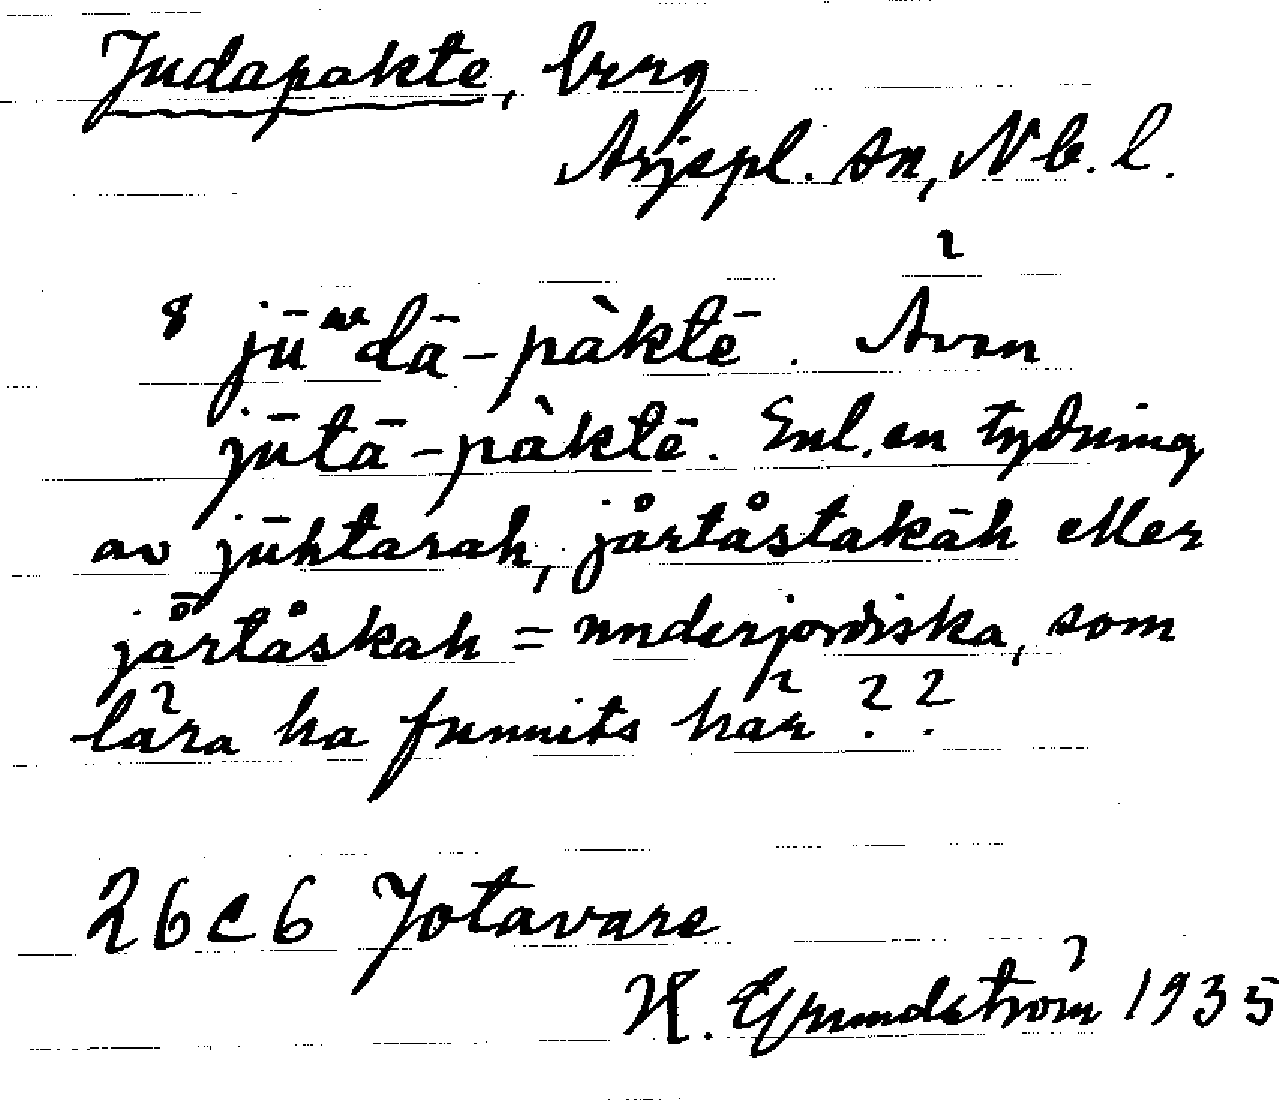 Judapakte, berg
Arjepl. sn, Nb. l.
jūʷdā-pàktē. Även
jūtā-pàktē. Enl. en tydning
av jūhtasah, jårtåstakāh eller
jårtåskah = underjordiska, som
lära ha funnits här ? ?
26 c 6 Jotavare
H. Grundström 1935